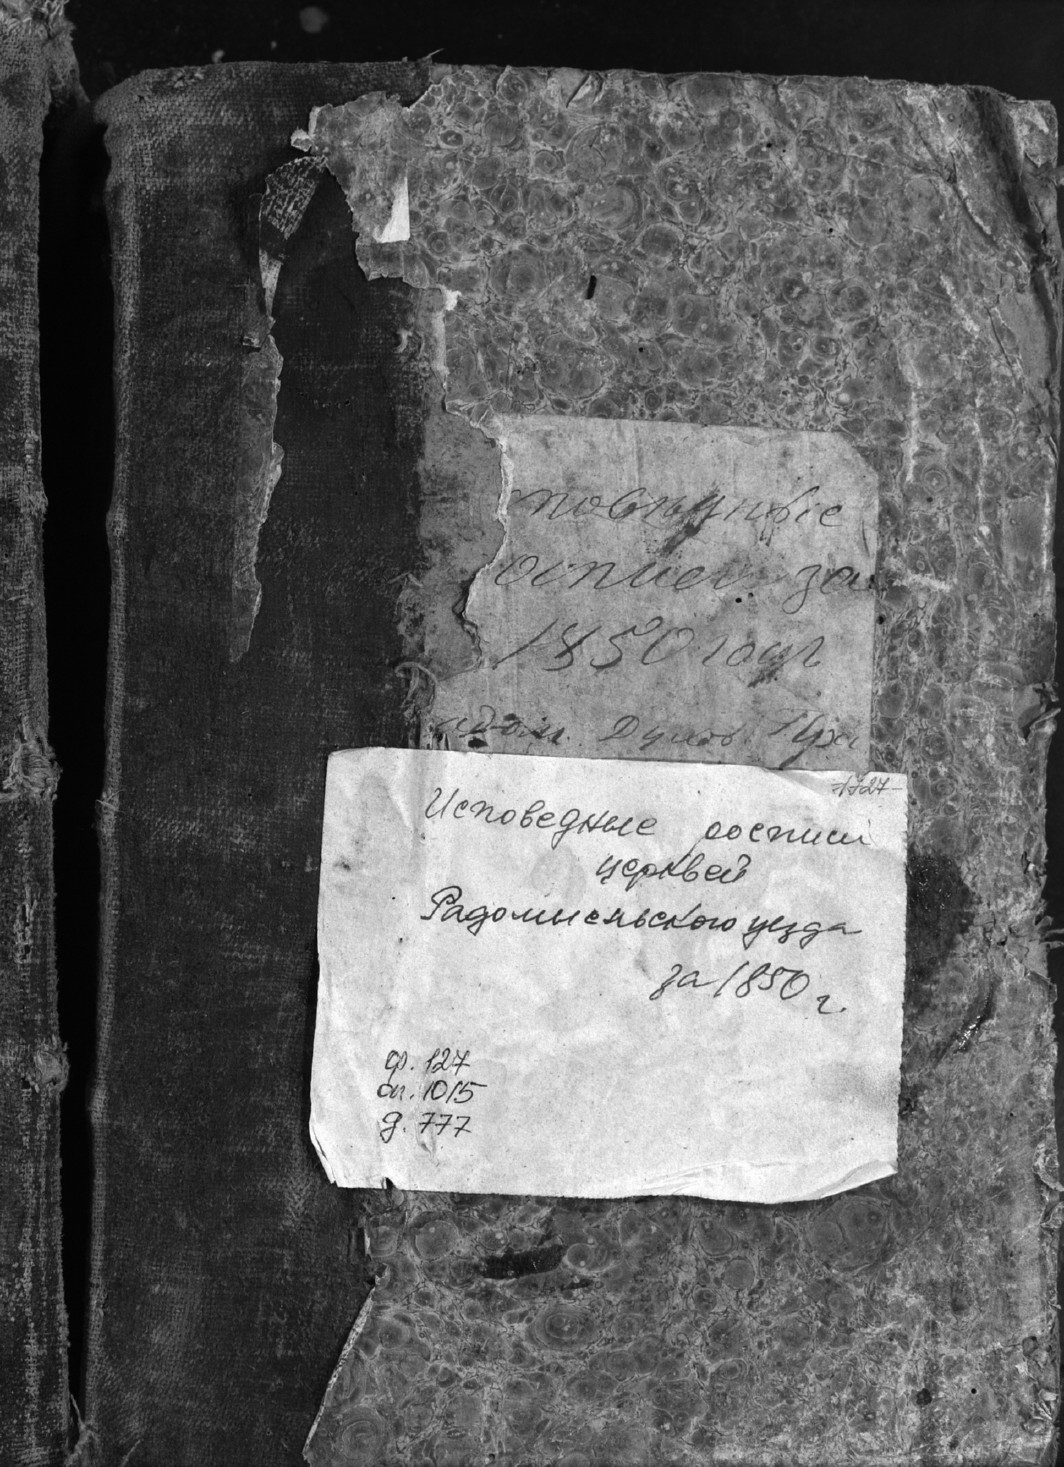 поведные
осписи за
1850 годъ
адом. Духов. Пра
1727-
Исповедные росписи
церквей
Радомысльского уезда
за 1850 г.
ф. 127
оп. 1015
д. 777